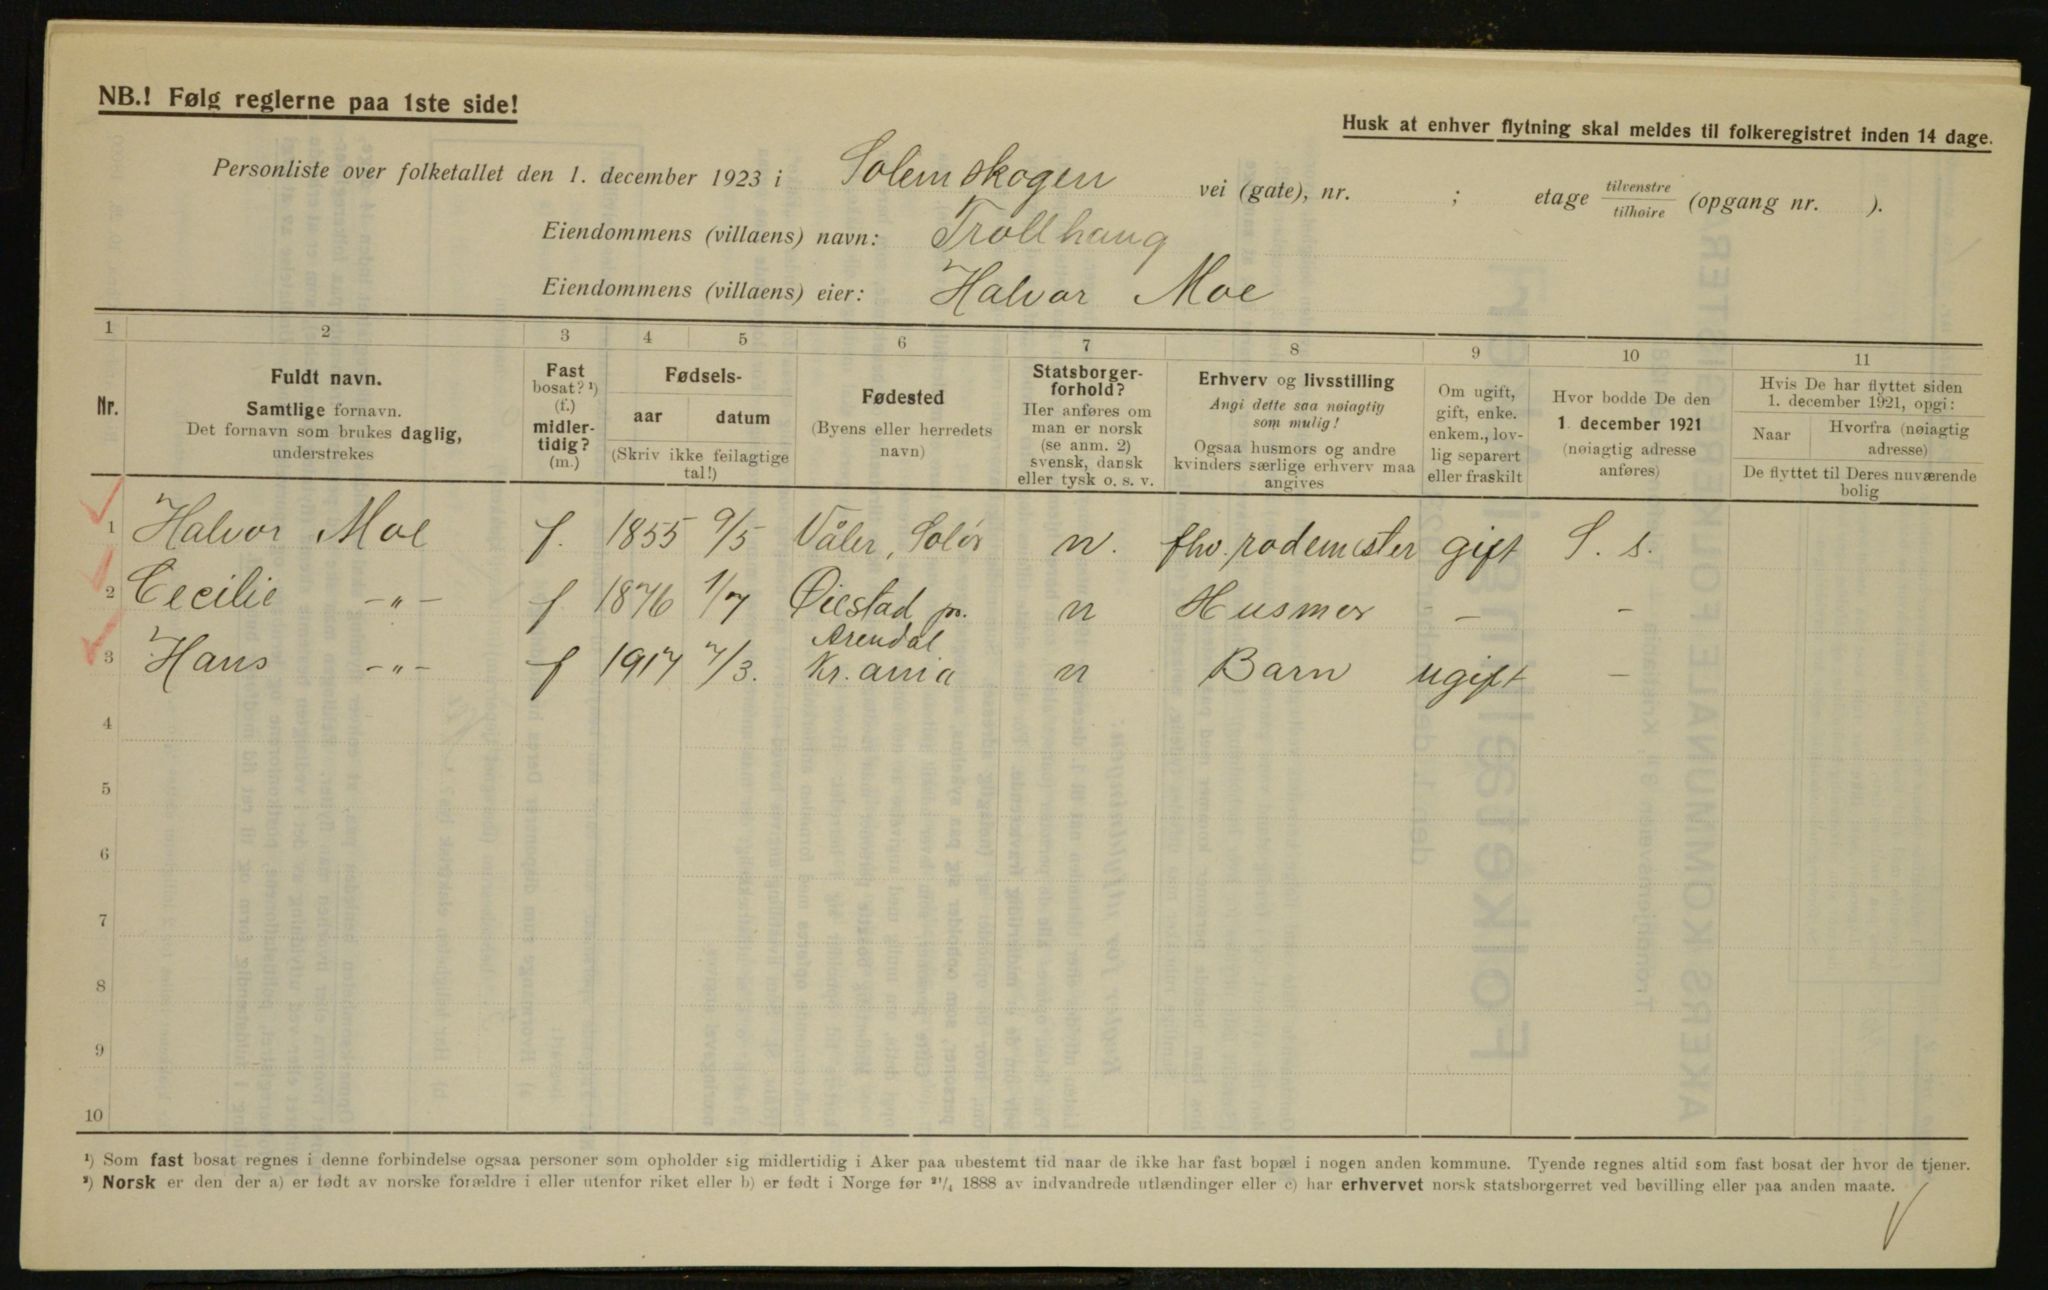 NB.! Følg reglerne paa 1ste side!
Husk at enhver flytning skal meldes til folkeregistret inden 14 dage.
Personliste over folketallet den 1. december 1923 i Solemskogen vei (gate), nr. ; etage tilvenstre / tilhøire (opgang nr. ).
Eiendommens (villaens) navn: Trollhaug
Eiendommens (villaens) eier: Halvor Moe
1 2 3 4 5 6 7 8 9 10 11
Nr.
Fuldt navn.
Samtlige fornavn.
Det fornavn som brukes daglig,
understrekes
Fast
bosat? ¹)
(f.)
midler-
tidig?
(m.)
Fødsels-
aar datum
(Skriv ikke feilagtige
tal!)
Fødested
(Byens eller herredets
navn)
Statsborger-
forhold?
Her anføres om
man er norsk
(se anm. 2)
svensk, dansk
eller tysk o. s. v.
Erhverv og livsstilling
Angi dette saa nøiagtig
som mulig!
Ogsaa husmors og andre
kvinders særlige erhverv maa
angives
Om ugift,
gift, enke.
enkem., lov-
lig separert
eller fraskilt
Hvor bodde De den
1. december 1921
(nøiagtig adresse
anføres)
Hvis De har flyttet siden
1. december 1921, opgi:
Naar Hvorfra (nøiagtig
adresse)
De flyttet til Deres nuværende
bolig
1 Halvor Moe f. 1855 9/5 Våler, Solør n. fhv. rodemester gift S. s.
2 Cecilie -"- f 1876 1/7 Øiestad pr. n Husmor - -
Arendal
3 Hans -"- f 1917 7/3. Kr.ania n Barn ugift -
4
5
6
7
8
9
10
¹) Som fast bosat regnes i denne forbindelse ogsaa personer som opholder sig midlertidig i Aker paa ubestemt tid naar de ikke har fast bopæl i nogen anden kommune. Tyende regnes altid som fast bosat der hvor de tjener.
²) Norsk er den der a) er født av norske forældre i eller utenfor riket eller b) er født i Norge før ²¹/₄ 1888 av indvandrede utlændinger eller c) har erhvervet norsk statsborgerret ved bevilling eller paa anden maate.